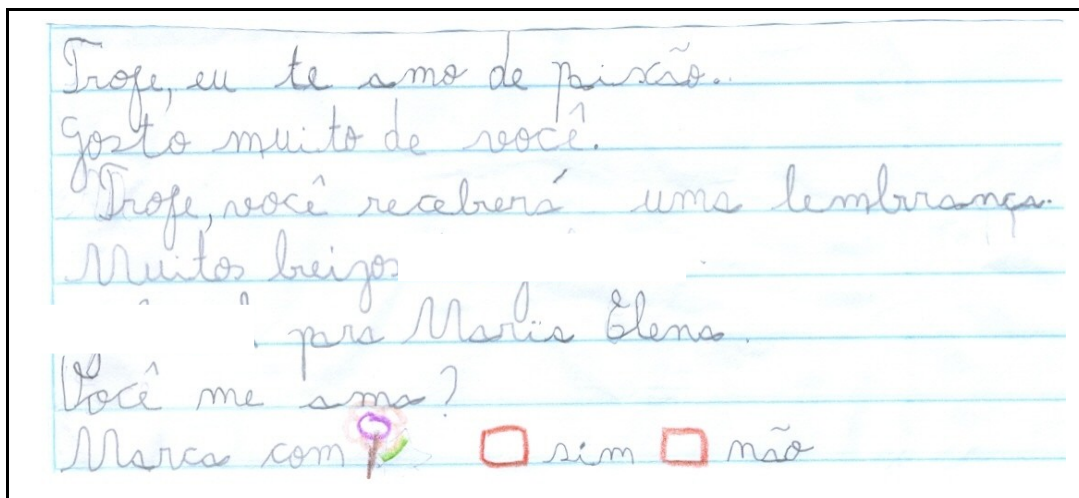 Profe, eu te amo de paixão..
Gosto muito de você.
Profe, você receberá uma lembrança.
Muitos beijos
para Maria Elena.
Você me ama?
Marca com sim não